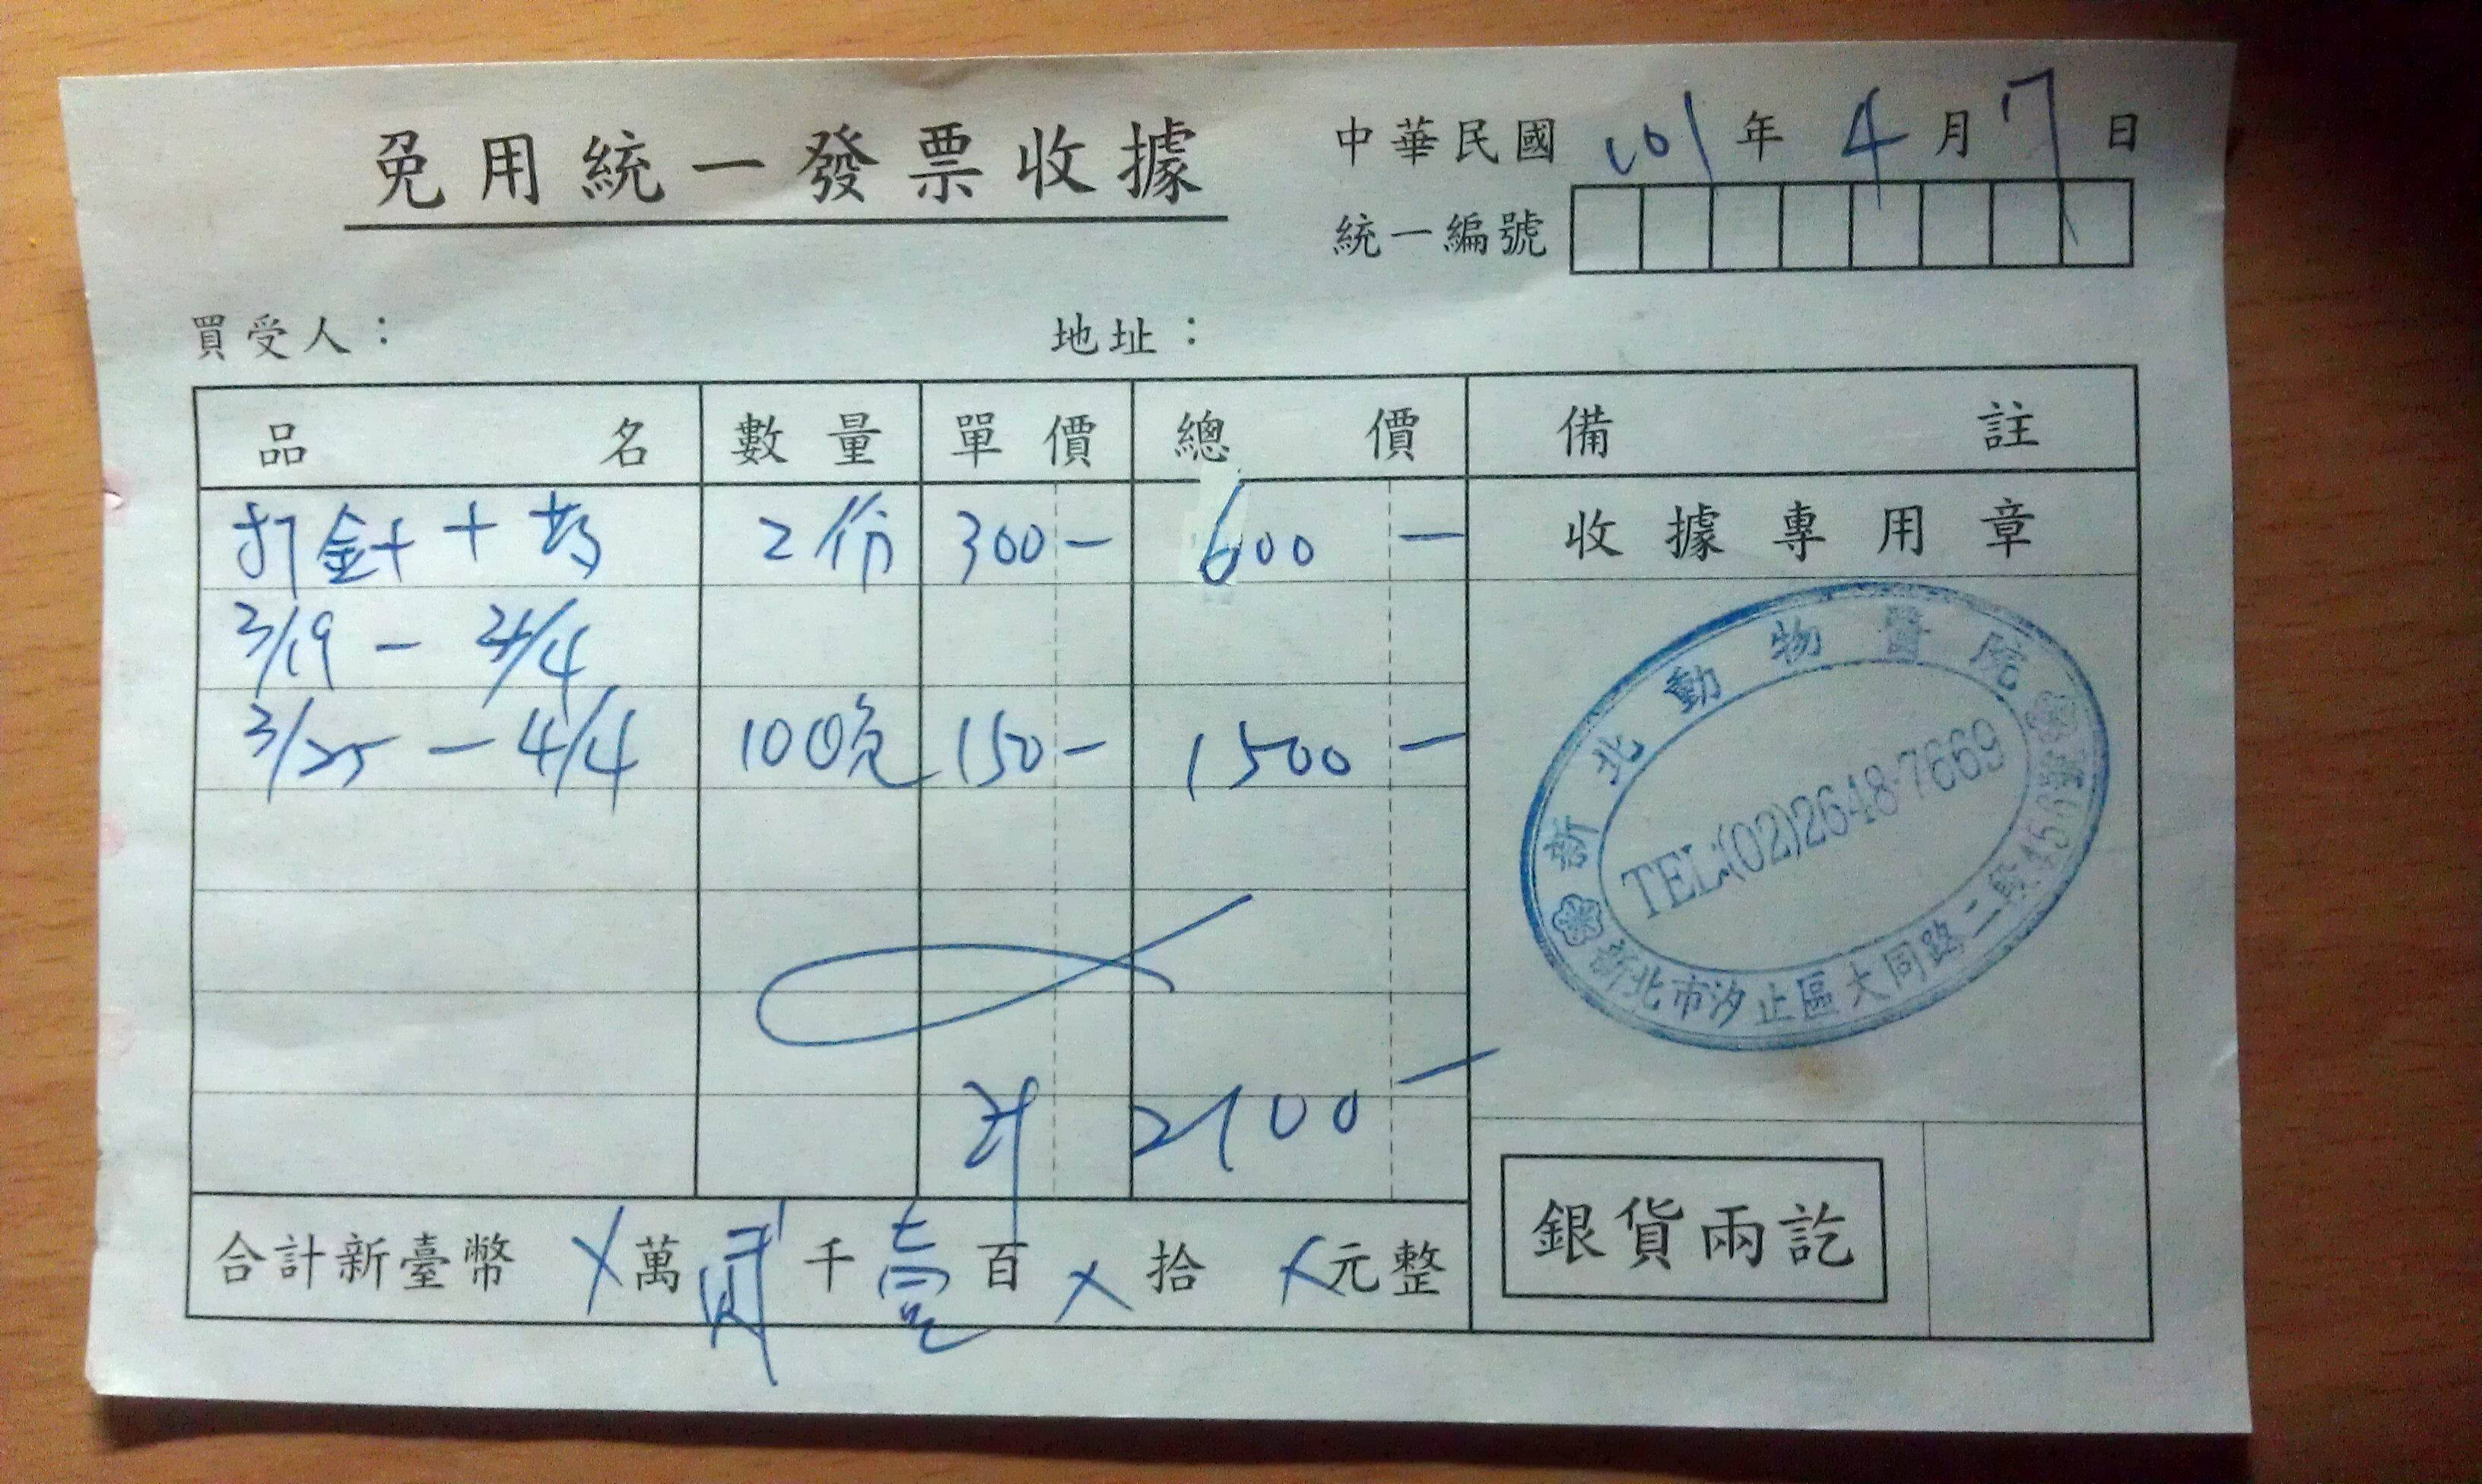 免用統一發票收據
中華民國 101 年 4 月 7 日
統一編號
買受人：
地址：
品名 數量 單價 總價 備註
打針+ 2份 300- 600 -
收據專用章
3/19 -
3/25 - 4/4 150- 1500 -
計 2100 -
合計新臺幣 X萬貳千壹百X拾X元整
新北動物醫院
TEL:(02)2648-7669
新北市汐止區大同路二段
銀貨兩訖